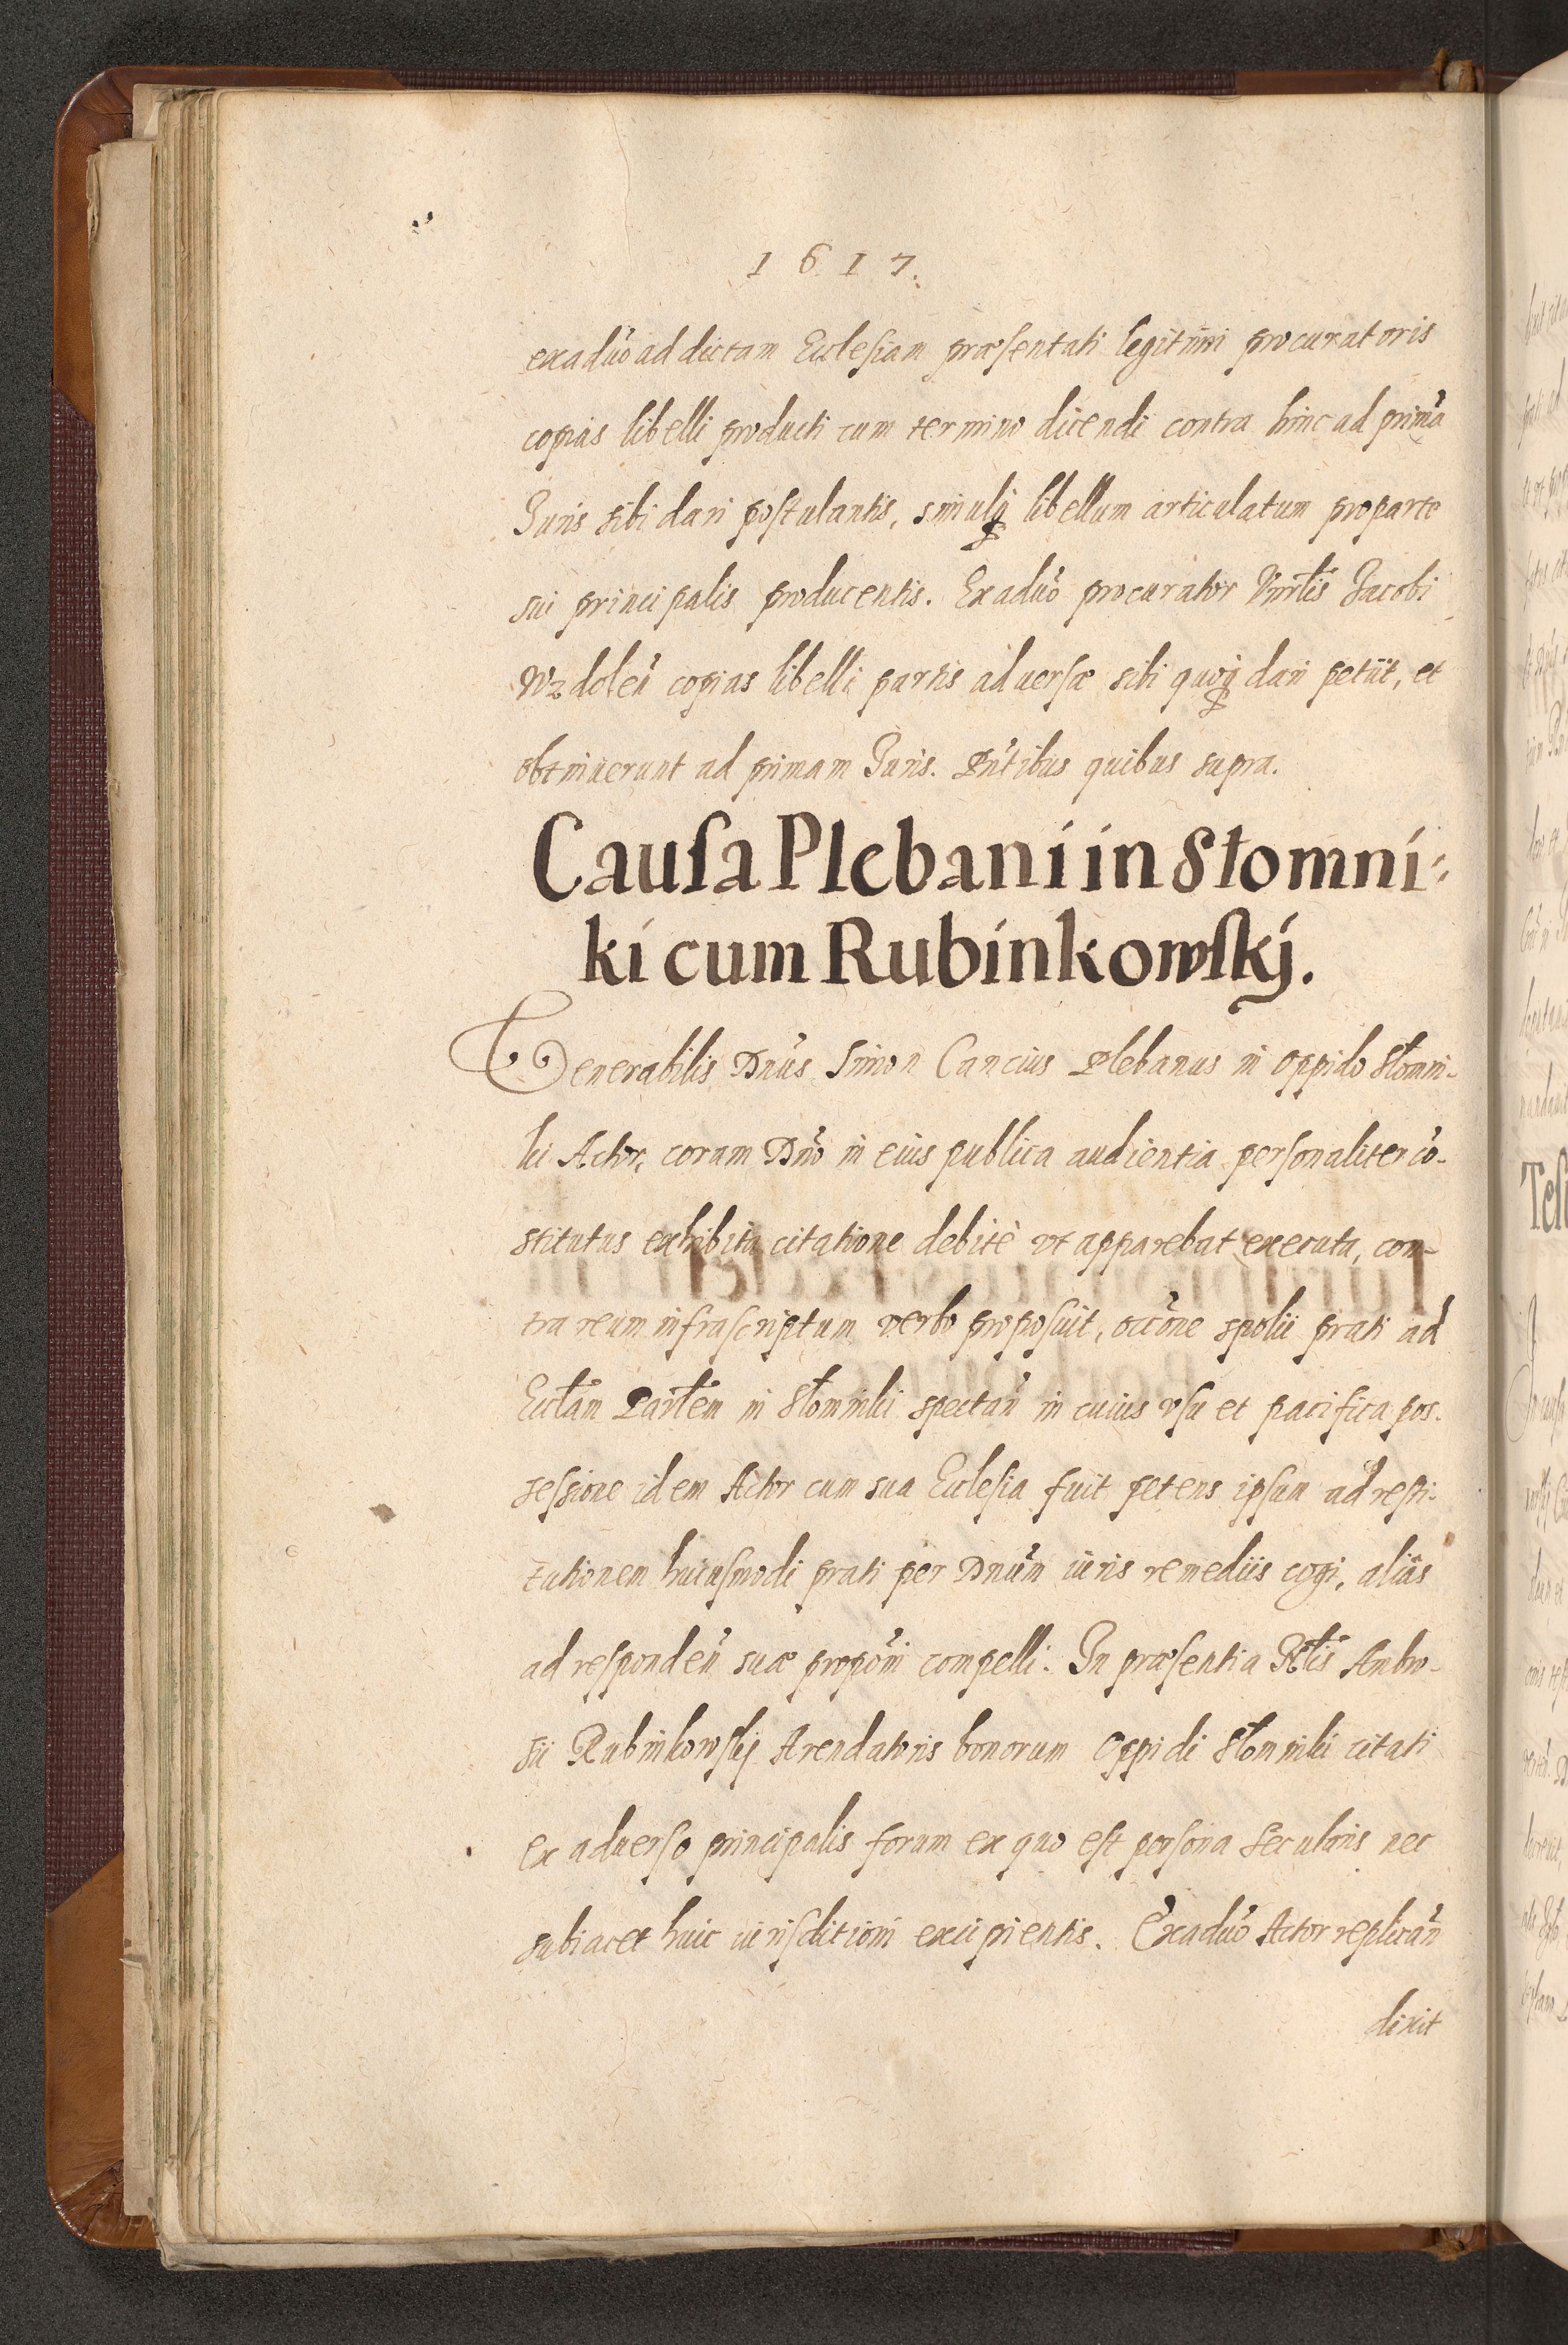 1617.
exaduo ad dictam Ecclesiam præsentati legitimi procuratoris
copias libelli producti cum termino dicendi contra hinc ad primã
Juris sibi dari postulantis, simulq libellum articulatum pro parte
sui principalis producentis. Exaduõ procurator Jacobi
Wzdoleñ copias libelli partis aduersæ sibi quoq dari petiit, et
obtinuerunt ad primam Juris. Pñtibus quibus supra.
Causa Plebani in Słomni-
ki cum Rubinkowskj.
Venerabilis Dñus Simon Cancius Plebanus in oppido Słomni-
ki Actor, coram Dño in eius publica audientia personaliter cõ-
stitutus exhibita citatione debitè vt apparebat executa, con-
tra reum infrascriptum verbo proposuit, occõne spolii prati ad
Eccłam Parłem in Słomniki spectañ in cuius vsu et pacifica pos-
sessione idem Actor cum sua Ecclesia fuit petens ipsum ad resti-
tutionem huiusmodi prati per Dnũm iuris remediis cogi, aliâs
ad respondeñ suæ propõni compelli. In præsentia Ambro-
sii Rubinkowskj Arendatoris bonorum Oppidi Słomniki citati
ex aduerso principalis forum ex quo est persona secularis nec
subiacet huic iurisditioni excipientis. Exaduõ Actor replicañ
dixit